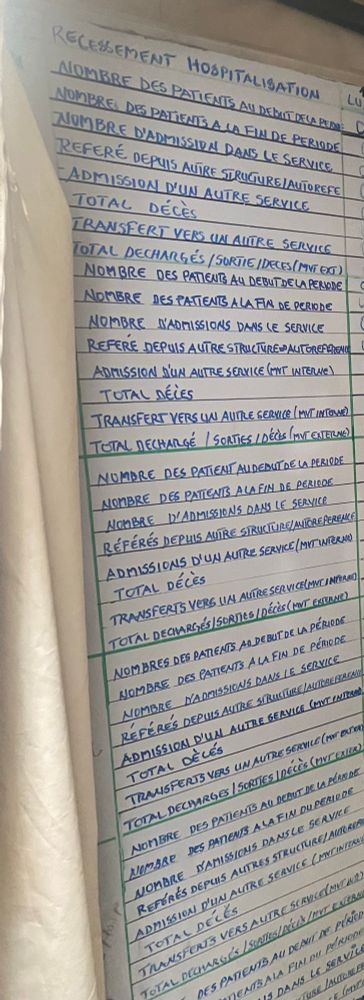 RECESSEMENT HOSPITALISATION LU
NOMBRE DES PATIENTS AU DEBUT DE LA PERIODE
NOMBRE DES PATIENTS A LA FIN DE PERIODE
NOMBRE D'ADMISSION DANS LE SERVICE
REFERÉ DEPUIS AUTRE STRUCTURE/AUTOREFE
ADMISSION D'UN AUTRE SERVICE
TOTAL DÉCÈS
TRANSFERT VERS UN AUTRE SERVICE
TOTAL DECHARGÉS/SORTIE/DECES (MVT EXT)
NOMBRE DES PATIENTS AU DEBUT DE LA PERIODE
NOMBRE DES PATIENTS A LA FIN DE PERIODE
NOMBRE D'ADMISSIONS DANS LE SERVICE
REFERÉ DEPUIS AUTRE STRUCTURE AUTOREFERENCE
ADMISSION D'UN AUTRE SERVICE (MVT INTERNE)
TOTAL DÉCES
TRANSFERT VERS UN AUTRE SERVICE (MVT INTERNE)
TOTAL DECHARGÉ / SORTIES / DÉCÈS (MVT EXTERNE)
NOMBRE DES PATIENT AU DEBUT DE LA PERIODE
NOMBRE DES PATIENTS A LA FIN DE PERIODE
NOMBRE D'ADMISSIONS DANS LE SERVICE
RÉFÉRÉS DEPUIS AUTRE STRUCTURE/AUTOREFERENCE
ADMISSIONS D'UN AUTRE SERVICE (MVT INTERNE)
TOTAL DÉCÈS
TRANSFERTS VERS UN AUTRE SERVICE (MVT INTERNE)
TOTAL DECHARGÉS/SORTIES/DÉCÈS (MVT EXTERNE)
NOMBRES DES PATIENTS AU DEBUT DE LA PÉRIODE
NOMBRE DES PATIENTS A LA FIN DE PÉRIODE
NOMBRE D'ADMISSIONS DANS LE SERVICE
RÉFÉRÉS DEPUIS AUTRE STRUCTURE/AUTOREFERENCE
ADMISSION D'UN AUTRE SERVICE (MVT INTERNE)
TOTAL DÉCÉS
TRANSFERTS VERS UN AUTRE SERVICE (MVT EXTER
TOTAL DECHARGES / SORTIES / DÉCÈS (MVT EXTER)
NOMBRE DES PATIENTS AU DEBUT DE LA PÉRIODE
NOMBRE DES PATIENTS A LA FIN DU PERIODE
NOMBRE D'AMISSIONS DANS LE SERVICE
REFERÉS DEPUIS AUTRES STRUCTURE/AUTOREFE
ADMISSION D'UN AUTRE SERVICE (MVT INTERNE
TOTAL DÉCÉS
TRANSFERTS VERS AUTRE SERVICE (MVT INT)
TOTAL DÉCHARGÉS / SORTIES/DÉCÈS / MVT EXTERNE
DES PATIENTS AU DEBUT DE PÉRIOD
A LA FIN DU PÉRIODE
DANS LE SERVICE